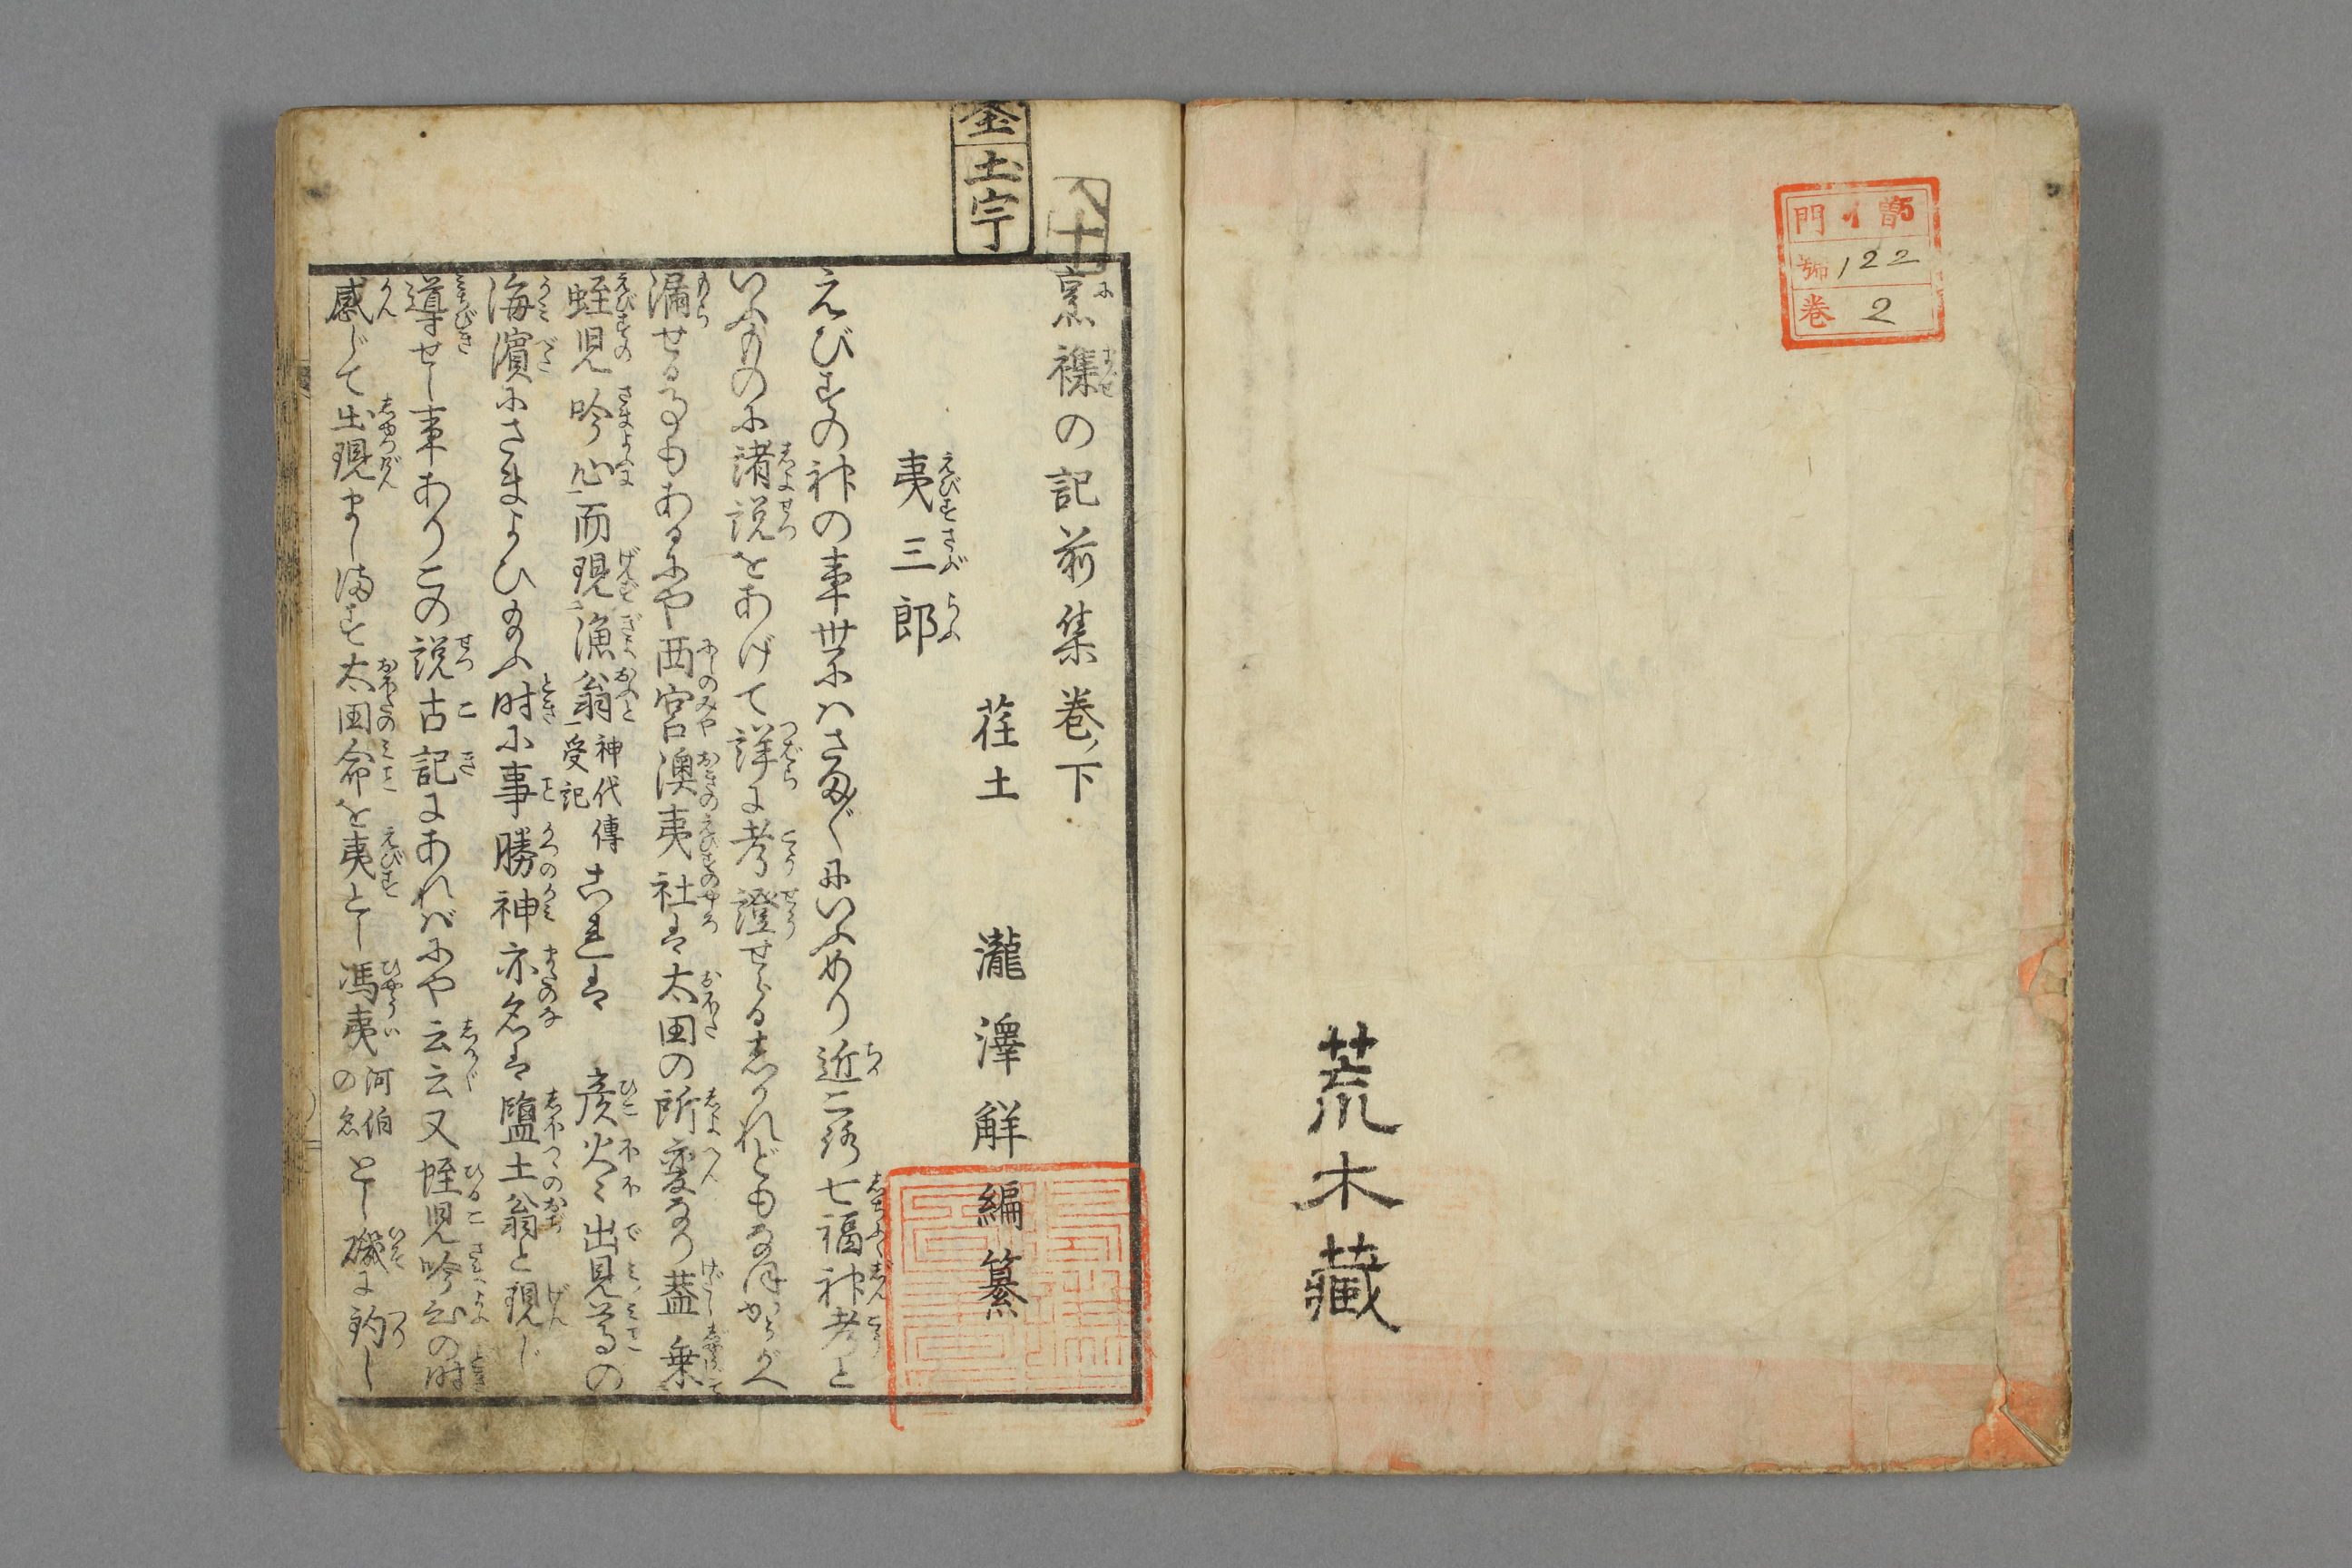 門 イ 曽5
号 122
巻 2
荒木藏
釜土宇
烹襍の記前集巻ノ下
荏土 瀧澤解編纂
夷三郎
えびすの神の事世にはさま〴〵にいふめり近ころ七福神考と
いふものに諸説をあげて詳に考證せらるしかれどもなほかうがへ
漏せる事もあるにや西宮澳夷社は太田の所変なり蓋乗
蛭児吟心而現漁翁 神代傳受記 これは 彦火々出見尊の
海濱にさまよひ給ふ時に事勝神亦名は鹽土翁と現じ
導せし事ありこの説古記にあればにや云云又蛭児吟ひの時
感じて出現まします太田命を夷とし馮夷 河伯の名 とし磯に釣し